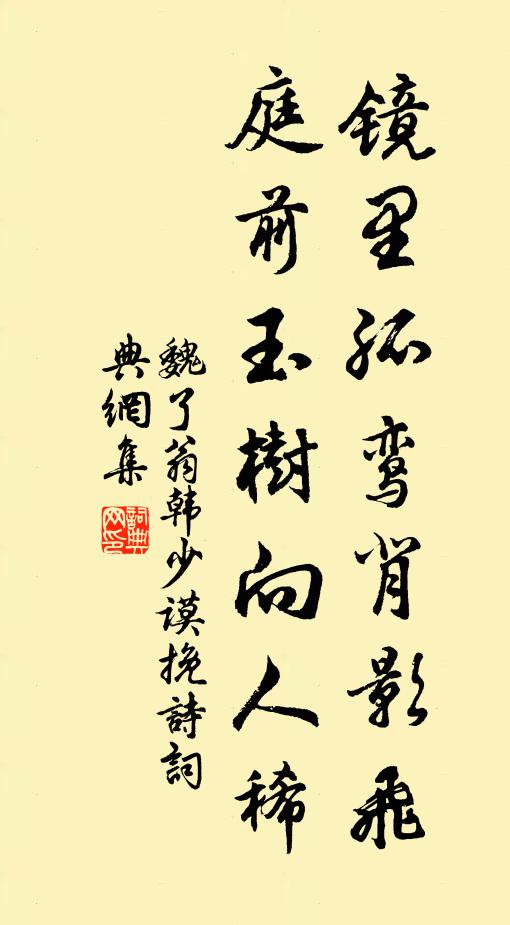 镜里孤鸾背影飞
庭前玉樹向人稀
魏了翁韩少谟挽詩詞
典網集
詞典
网印